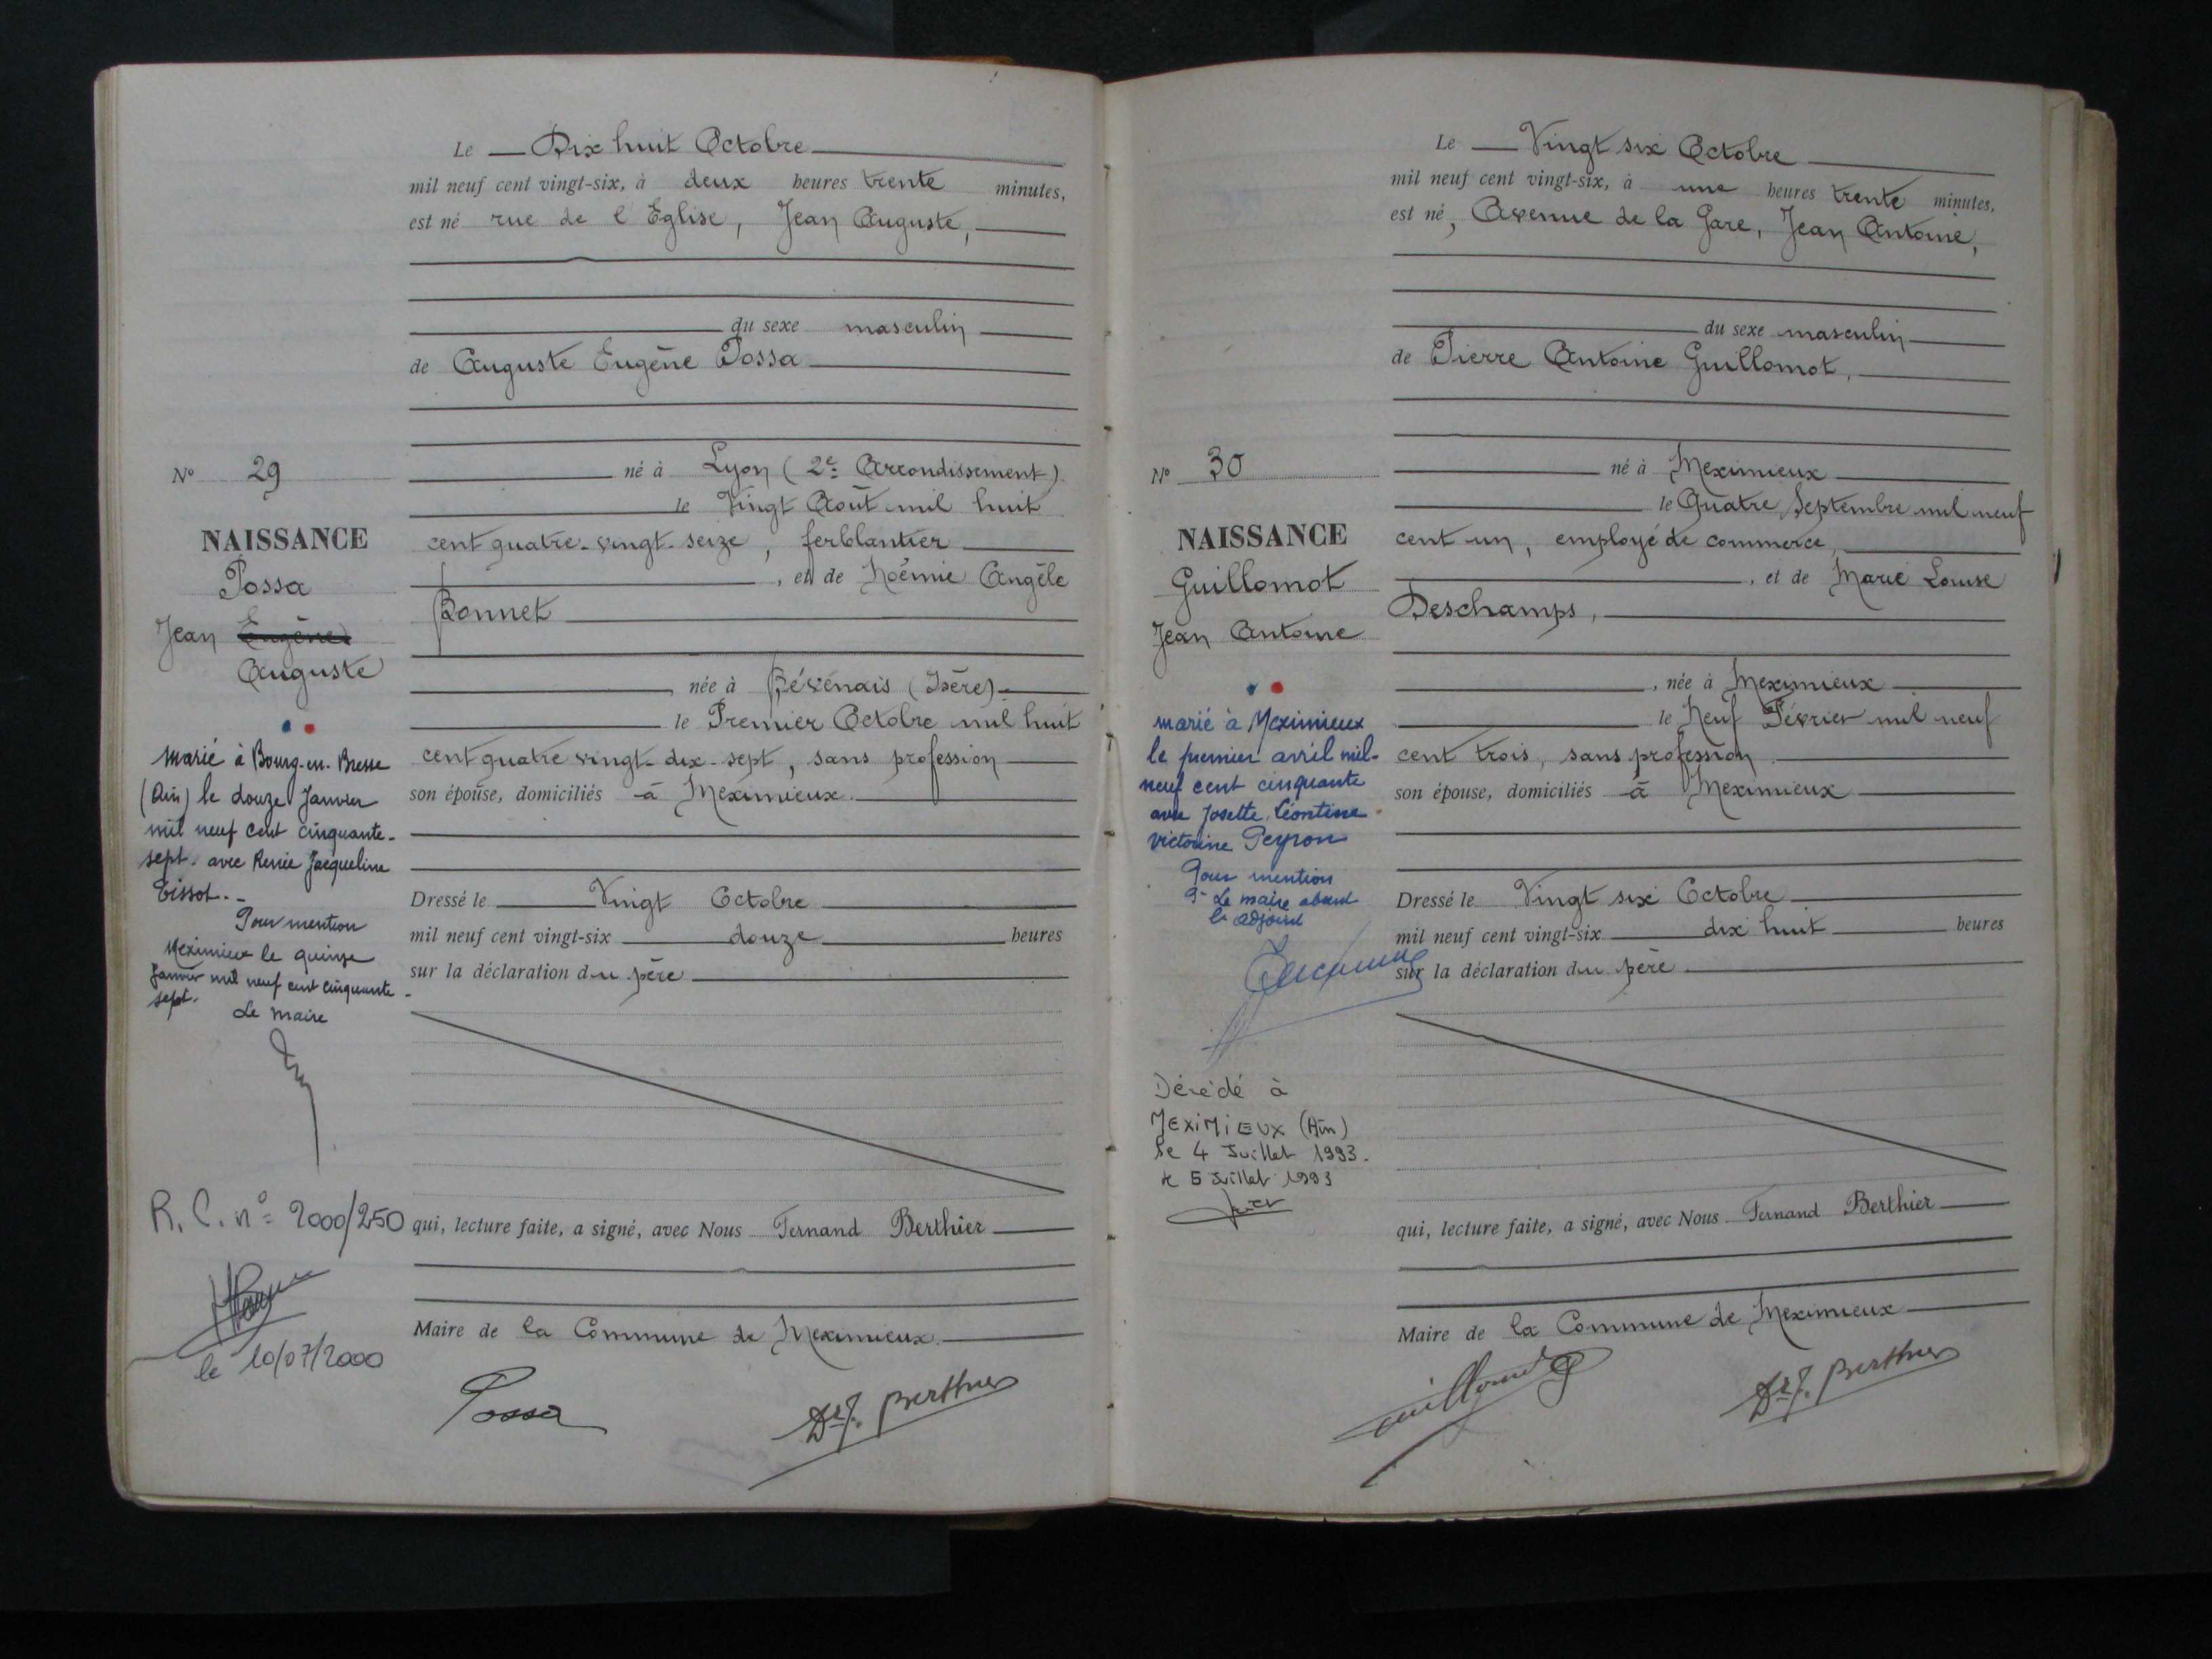 Le Dix huit Octobre
mil neuf cent vingt-six, à deux heures trente minutes,
est né rue de l'Eglise, Jean Auguste,
du sexe masculin
de Auguste Eugène Possa
N° 29
né à Lyon (2e Arrondissement)
le Vingt Août mil huit
NAISSANCE
cent quatre-vingt-seize, ferblantier
Possa
, et de Noémie Angèle
Jean Eugène
Bonnet
Auguste
née à Bévenais (Isère)
le Premier Octobre mil huit
cent quatre vingt-dix-sept, sans profession
son épouse, domiciliés à Meximieux
marié à Bourg-en-Bresse
(Ain) le douze Janvier
mil neuf cent cinquante-
sept. avec Renée Jacqueline
Tissot.-
Pour mention
Meximieux le quinze
Janvier mil neuf cent cinquante-
sept.
Le Maire
Dressé le Vingt Octobre
mil neuf cent vingt-six douze heures
sur la déclaration du père
R.C. n° 2000/250
qui, lecture faite, a signé, avec Nous Fernand Berthier
le 10/07/2000
Maire de la Commune de Meximieux.
Possa
Dr f. Berthier
Le Vingt six Octobre
mil neuf cent vingt-six, à une heures trente minutes,
est né, Avenue de la Gare, Jean Antoine,
du sexe masculin
de Pierre Antoine Guillomot,
N° 30
né à Meximieux
le Quatre Septembre mil neuf
NAISSANCE
cent un, employé de commerce,
Guillomot
, et de Marie Louise
Jean Antoine
Deschamps,
, née à Meximieux
le Neuf Février mil neuf
cent trois, sans profession
son épouse, domiciliés à Meximieux
marié à Meximieux
le premier avril mil-
neuf cent cinquante
avec Josette Léontine
Victorine Peyron
Pour mention
Pr Le maire absent
l'adjoint
Dressé le Vingt six Octobre
mil neuf cent vingt-six dix huit heures
sur la déclaration du père
Décédé à
MEXIMIEUX (Ain)
le 4 Juillet 1993.
le 5 Juillet 1993
qui, lecture faite, a signé, avec Nous Fernand Berthier
Maire de la Commune de Meximieux
Guillomot
Dr f. Berthier